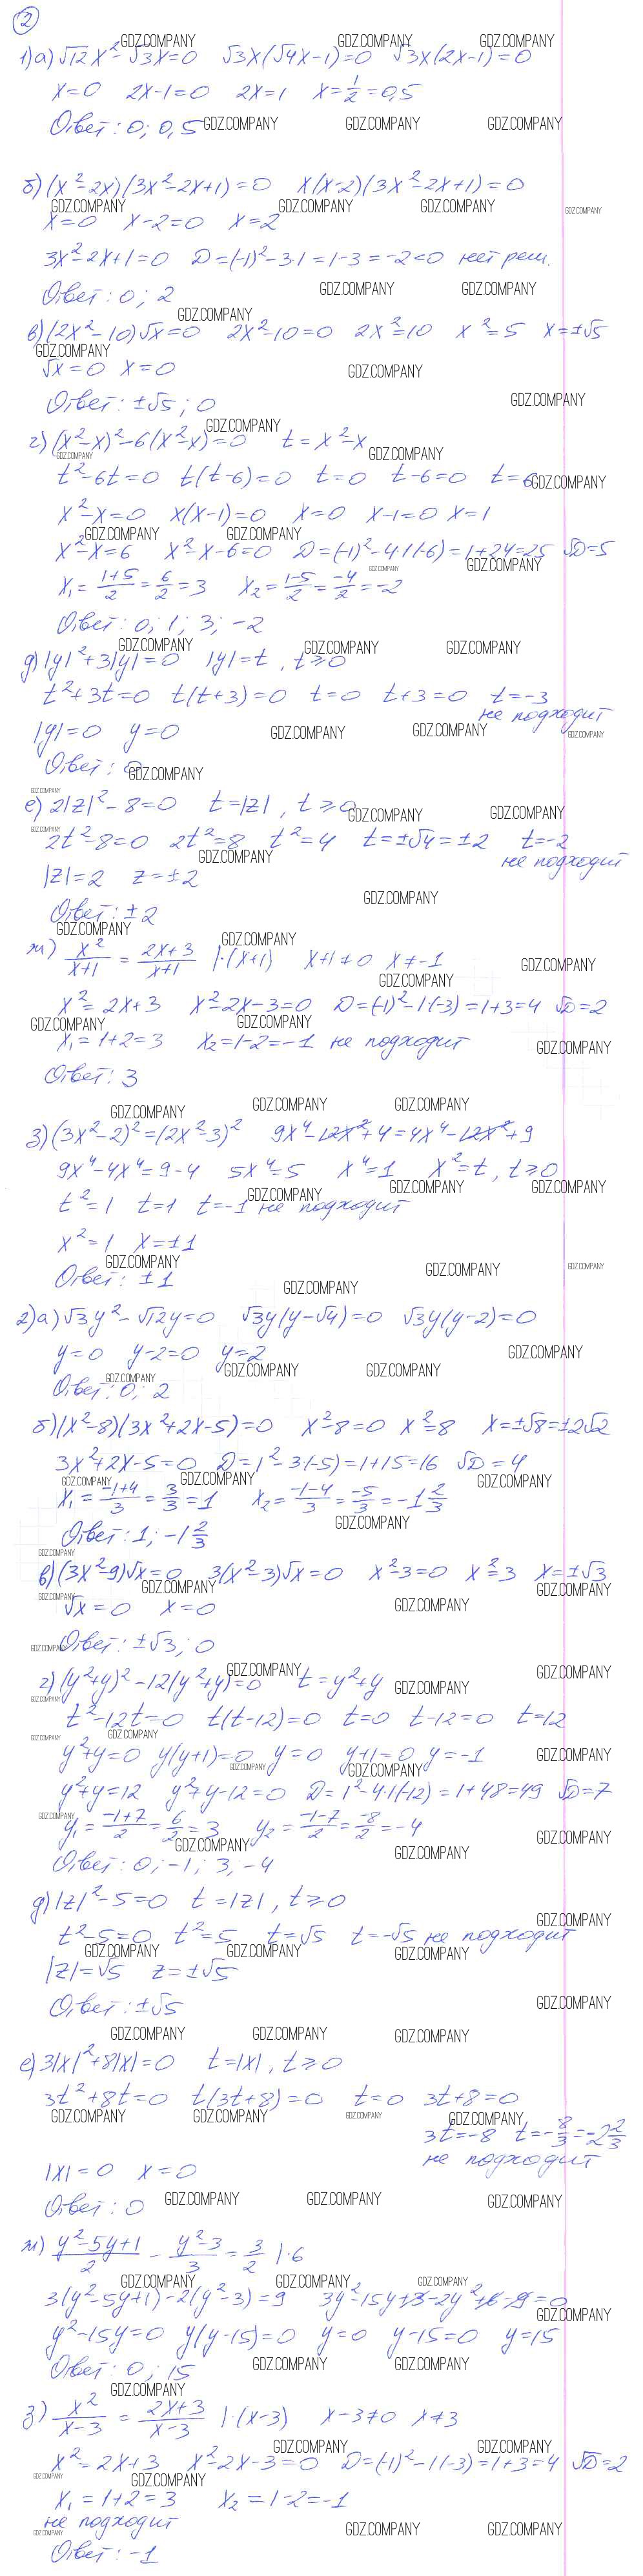 2
1) а) √12x² - √3x = 0   √3x(√4x - 1) = 0   √3x(2x - 1) = 0
x = 0   2x - 1 = 0   2x = 1   x = 1/2 = 0,5
Ответ: 0; 0,5
б) (x² - 2x)(3x² - 2x + 1) = 0   x(x - 2)(3x² - 2x + 1) = 0
x = 0   x - 2 = 0   x = 2
3x² - 2x + 1 = 0   D = (-1)² - 3·1 = 1 - 3 = -2 < 0 нет реш.
Ответ: 0; 2
в) (2x² - 10)√x = 0   2x² - 10 = 0   2x² = 10   x² = 5   x = ±√5
√x = 0   x = 0
Ответ: ±√5; 0
г) (x² - x)² - 6(x² - x) = 0   t = x² - x
t² - 6t = 0   t(t - 6) = 0   t = 0   t - 6 = 0   t = 6
x² - x = 0   x(x - 1) = 0   x = 0   x - 1 = 0   x = 1
x² - x = 6   x² - x - 6 = 0   D = (-1)² - 4·1·(-6) = 1 + 24 = 25   √D = 5
x₁ = (1+5)/2 = 6/2 = 3   x₂ = (1-5)/2 = -4/2 = -2
Ответ: 0; 1; 3; -2
д) |y|² + 3|y| = 0   |y| = t, t ≥ 0
t² + 3t = 0   t(t + 3) = 0   t = 0   t + 3 = 0   t = -3
не подходит
|y| = 0   y = 0
Ответ: 0
е) 2|z|² - 8 = 0   t = |z|, t ≥ 0
2t² - 8 = 0   2t² = 8   t² = 4   t = ±√4 = ±2   t = -2
не подходит
|z| = 2   z = ±2
Ответ: ±2
ж) x²/(x+1) = (2x+3)/(x+1) |·(x+1)   x+1 ≠ 0   x ≠ -1
x² = 2x + 3   x² - 2x - 3 = 0   D = (-1)² - 1·(-3) = 1 + 3 = 4   √D = 2
x₁ = 1 + 2 = 3   x₂ = 1 - 2 = -1 не подходит
Ответ: 3
з) (3x² - 2)² = (2x² - 3)²   9x⁴ - 12x² + 4 = 4x⁴ - 12x² + 9
9x⁴ - 4x⁴ = 9 - 4   5x⁴ = 5   x⁴ = 1   x² = t, t ≥ 0
t² = 1   t = 1   t = -1 не подходит
x² = 1   x = ±1
Ответ: ±1
2) а) √3y² - √12y = 0   √3y(y - √4) = 0   √3y(y - 2) = 0
y = 0   y - 2 = 0   y = 2
Ответ: 0; 2
б) (x² - 8)(3x² + 2x - 5) = 0   x² - 8 = 0   x² = 8   x = ±√8 = ±2√2
3x² + 2x - 5 = 0   D = 1² - 3·(-5) = 1 + 15 = 16   √D = 4
x₁ = (-1+4)/3 = 3/3 = 1   x₂ = (-1-4)/3 = -5/3 = -1 2/3
Ответ: 1; -1 2/3
в) (3x² - 9)√x = 0   3(x² - 3)√x = 0   x² - 3 = 0   x² = 3   x = ±√3
√x = 0   x = 0
Ответ: ±√3; 0
г) (y² + y)² - 12(y² + y) = 0   t = y² + y
t² - 12t = 0   t(t - 12) = 0   t = 0   t - 12 = 0   t = 12
y² + y = 0   y(y + 1) = 0   y = 0   y + 1 = 0   y = -1
y² + y = 12   y² + y - 12 = 0   D = 1² - 4·1·(-12) = 1 + 48 = 49   √D = 7
y₁ = (-1+7)/2 = 6/2 = 3   y₂ = (-1-7)/2 = -8/2 = -4
Ответ: 0; -1; 3; -4
д) |z|² - 5 = 0   t = |z|, t ≥ 0
t² - 5 = 0   t² = 5   t = √5   t = -√5 не подходит
|z| = √5   z = ±√5
Ответ: ±√5
е) 3|x|² + 8|x| = 0   t = |x|, t ≥ 0
3t² + 8t = 0   t(3t + 8) = 0   t = 0   3t + 8 = 0
3t = -8   t = -8/3 = -2 2/3
не подходит
|x| = 0   x = 0
Ответ: 0
ж) (y² - 5y + 1)/2 - (y² - 3)/3 = 3/2 |·6
3(y² - 5y + 1) - 2(y² - 3) = 9   3y² - 15y + 3 - 2y² + 6 - 9 = 0
y² - 15y = 0   y(y - 15) = 0   y = 0   y - 15 = 0   y = 15
Ответ: 0; 15
з) x²/(x-3) = (2x+3)/(x-3) |·(x-3)   x - 3 ≠ 0   x ≠ 3
x² = 2x + 3   x² - 2x - 3 = 0   D = (-1)² - 1·(-3) = 1 + 3 = 4   √D = 2
x₁ = 1 + 2 = 3   x₂ = 1 - 2 = -1
не подходит
Ответ: -1
GDZ.COMPANY